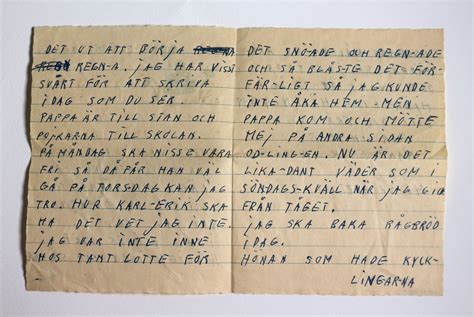 DET UT ATT BÖRJA
REGN-A. JAG HAR VISST
SVÅRT FÖR ATT SKRIVA
IDAG SOM DU SER.
PAPPA ÄR TILL STAN OCH
POJKARNA TILL SKOLAN.
PÅ MÅNDAG SKA NISSE VARA
FRI SÅ DÅ FÅR HAN VÄL
GÅ PÅ TORSDAG KAN JAG
TRO. HUR KARL-ERIK SKA
HA DET VET JAG INTE.
JAG VAR INTE INNE
HOS TANT LOTTE FÖR
DET SNÖ-ADE OCH REGN-ADE
OCH SÅ BLÅS-TE DET FÖR-
FÄR-LIGT SÅ JAG KUNDE
INTE ÅKA HEM. MEN
PAPPA KOM OCH MÖTTE
MEJ PÅ ANDRA SIDAN
OD-LING-EN. NU ÄR DET
LIKA-DANT VÄDER SOM I
SÖNDAGS-KVÄLL NÄR JAG GICK
FRÅN TÅGET.
JAG SKA BAKA RÅGBRÖD
IDAG.
HÖNAN SOM HADE KYCK-
LINGARNA